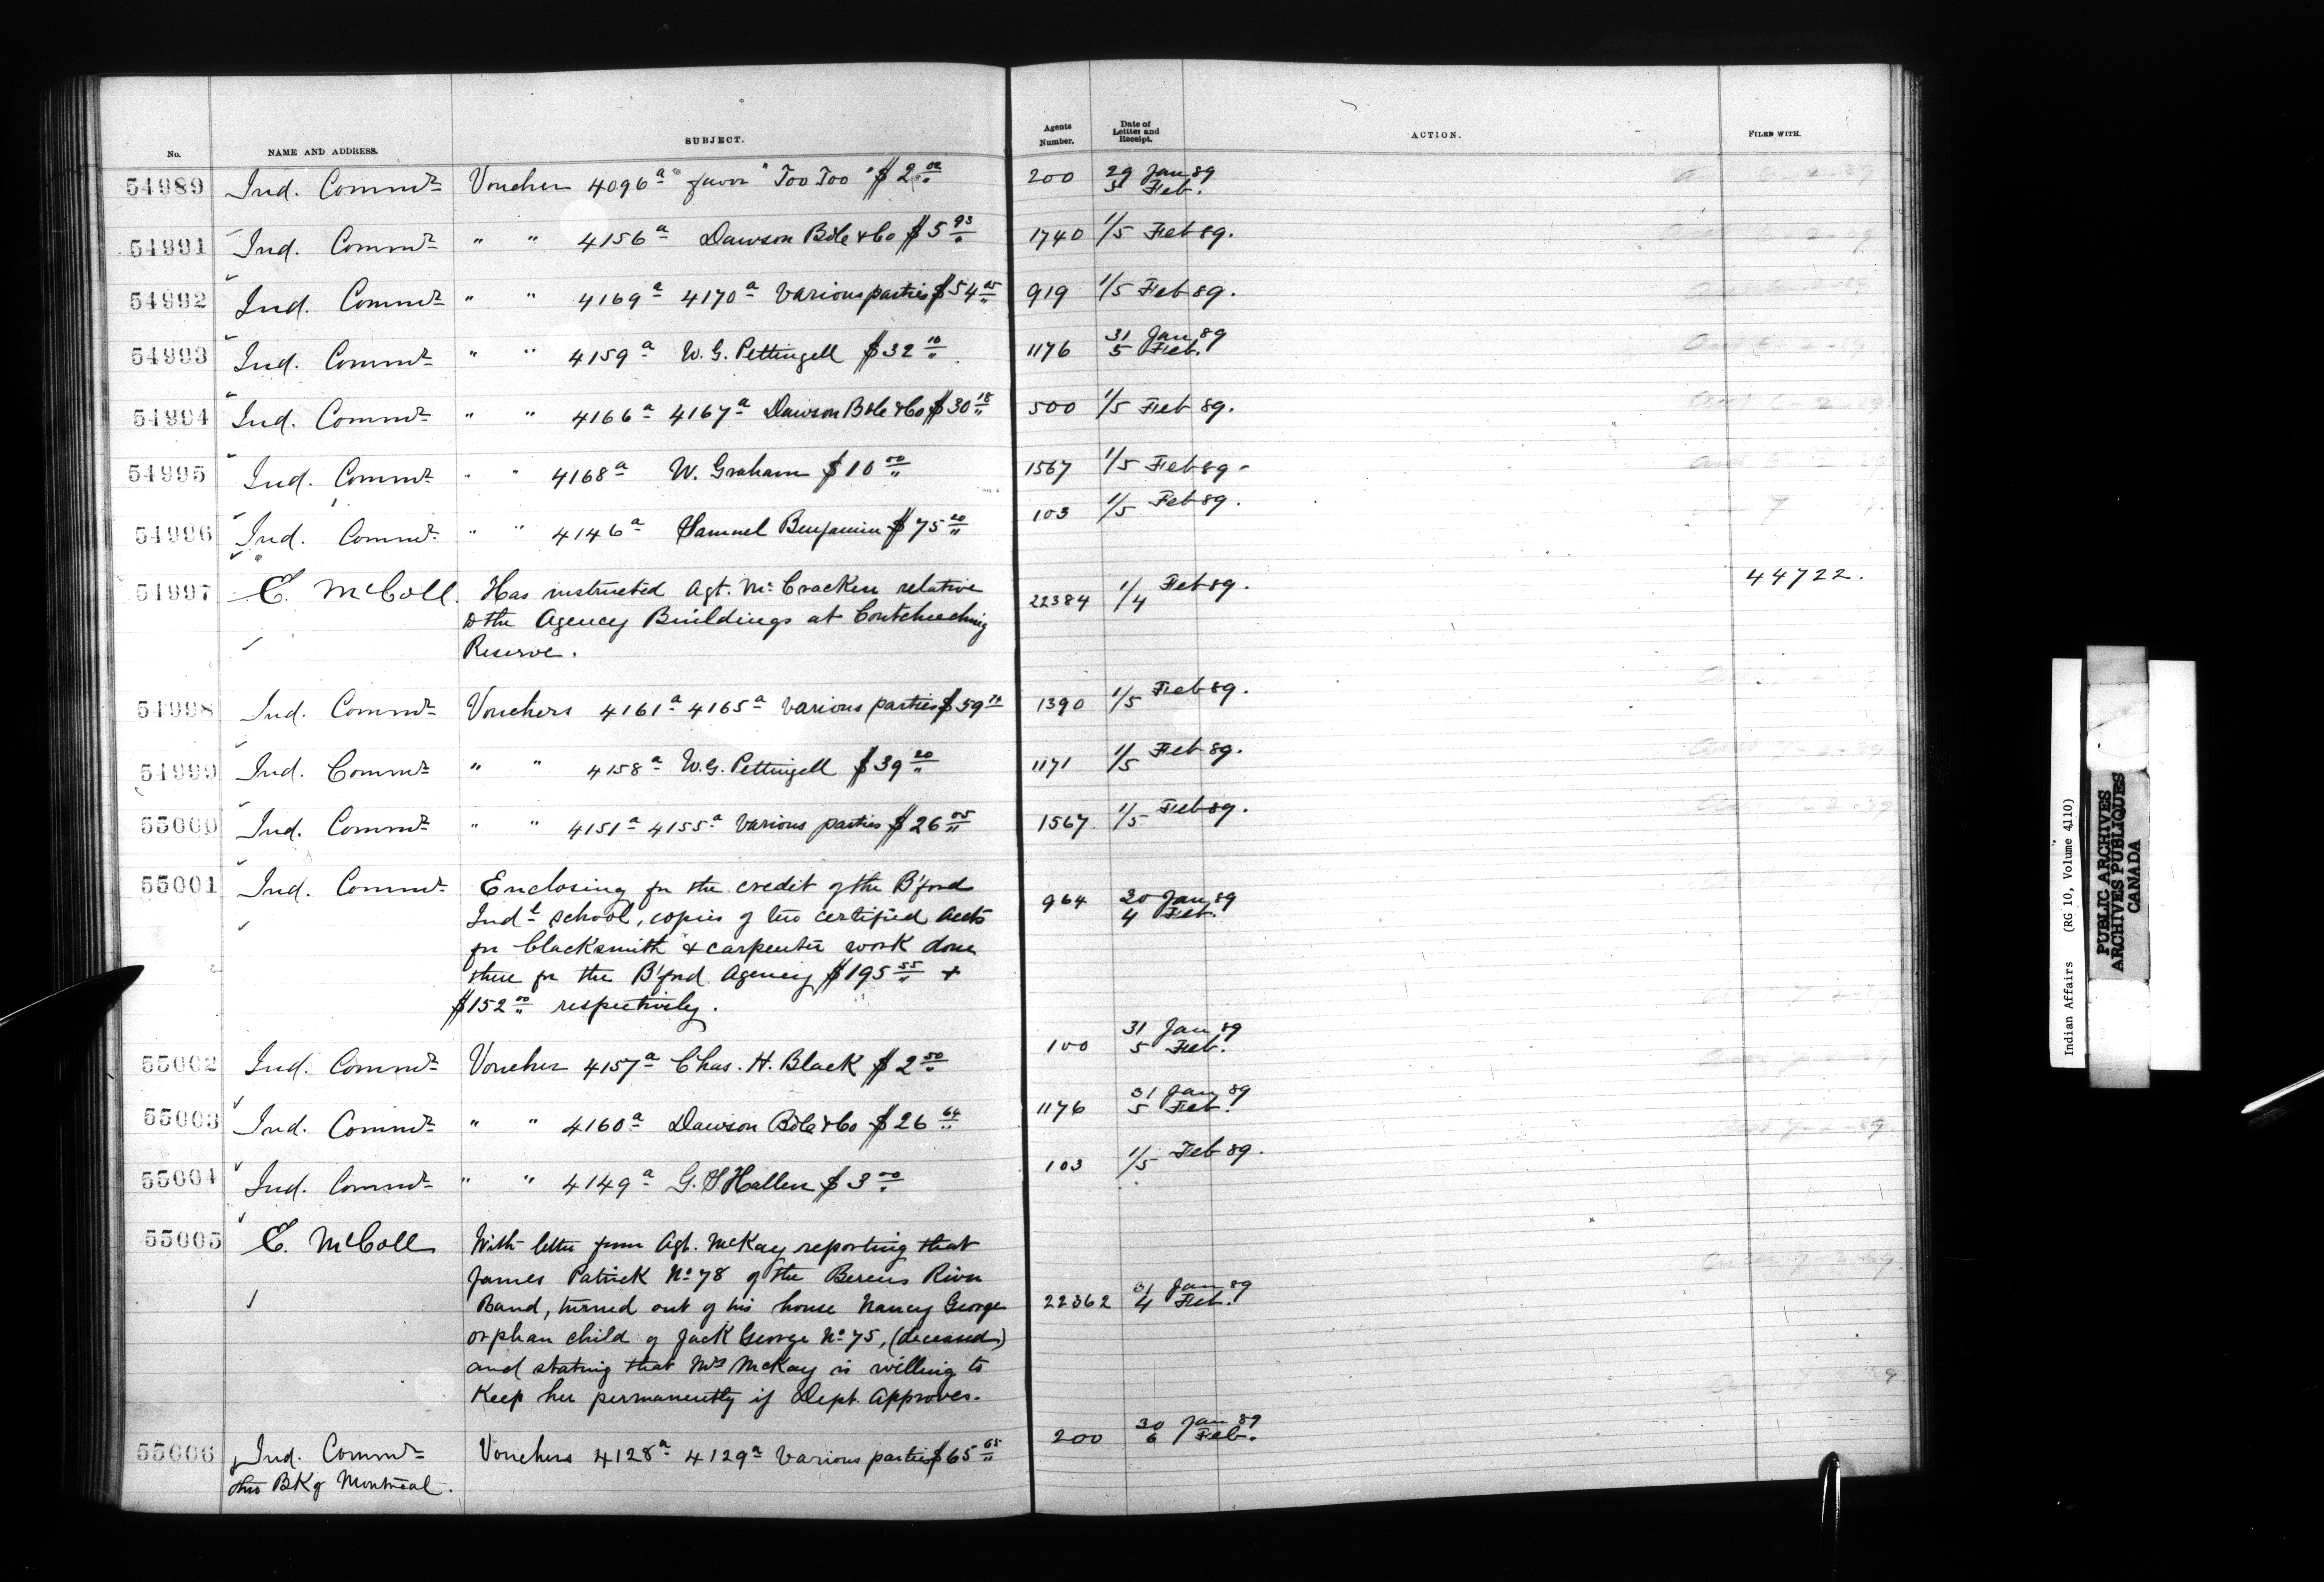 No. NAME AND ADDRESS. SUBJECT. Agents Number. Date of Letter and Receipt. ACTION. FILED WITH.
54989 Ind. Commr Voucher 4096a favor "Too Too" $2 00 200 29 Jan 89
5 Feb.
54991 Ind. Commr " " 4156a Dawson Bole & Co $5 93 1740 1/5 Feb 89.
54992 Ind. Commr " " 4169a 4170a Various parties $54 05 919 1/5 Feb 89.
54993 Ind. Commr " " 4159a W. G. Pettingell $32 10 1176 31 Jan 89
5 Feb.
54994 Ind. Commr " " 4166a 4167a Dawson Bole & Co $30 18 500 1/5 Feb 89.
54995 Ind. Commr " " 4168a W. Graham $10 00 1567 1/5 Feb 89 -
54996 Ind. Commr " " 4146a Samuel Benjamin $75 20 103 1/5 Feb 89.
54997 E. McColl. Has instructed Agt. McCracken relative 22384 1/4 Feb 89. 44722.
to the Agency Buildings at Coutcheeching
Reserve.
54998 Ind. Commr Vouchers 4161a 4165a Various parties $59 1390 1/5 Feb 89.
54999 Ind. Commr " " 4158a W. G. Pettingell $39 20 1171 1/5 Feb 89.
55000 Ind. Commr " " 4151a 4155a Various parties $26 05 1567 1/5 Feb 89.
55001 Ind. Commr Enclosing for the credit of the B'ford 964 30 Jan 89
Indl school, copies of two certified accts 4 Feb.
for blacksmith & carpenter work done
there for the B'ford Agency $195 55 +
$152 00 respectively.
55002 Ind. Commr Voucher 4157a Chas. H. Black $2 50 100 31 Jan 89
5 Feb.
55003 Ind. Commr " " 4160a Dawson Bole & Co $26 64 1176 31 Jan 89
5 Feb.
55004 Ind. Commr " " 4149a G. S Hallen $3 00 103 1/5 Feb 89.
55005 E. McColl With letter from Agt. McKay reporting that
James Patrick No 78 of the Berens River
Band, turned out of his house Nancy George 22362 31 Jan 89
4 Feb.
orphan child of Jack George No 75, (deceased)
and stating that Mrs McKay is willing to
Keep her permanently if Dept. Approves.
55006 Ind. Commr Vouchers 4128a 4129a Various parties $65 65 200 30 Jan 89
6 Feb.
thro BK of Montreal.
Indian Affairs (RG 10, Volume 4110)
PUBLIC ARCHIVES
ARCHIVES PUBLIQUES
CANADA